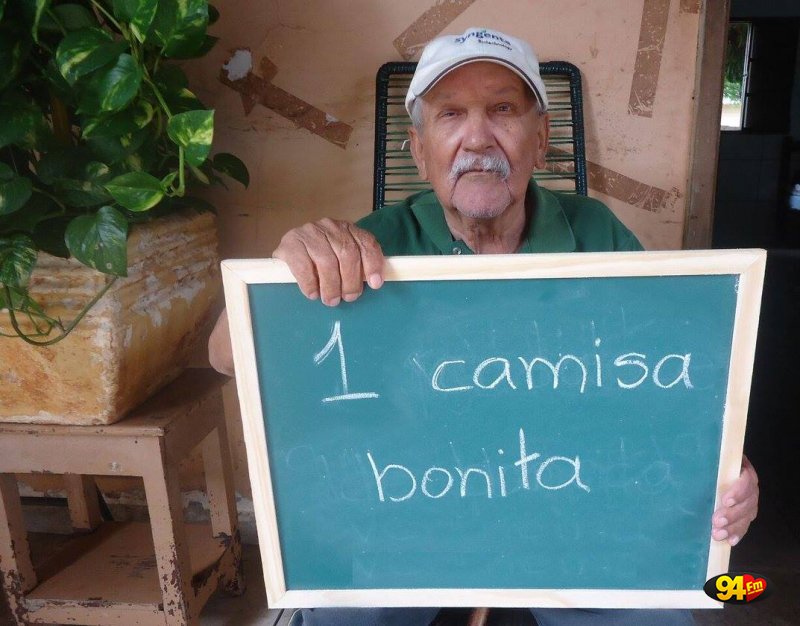 syngenta
1 camisa
bonita
94 Fm